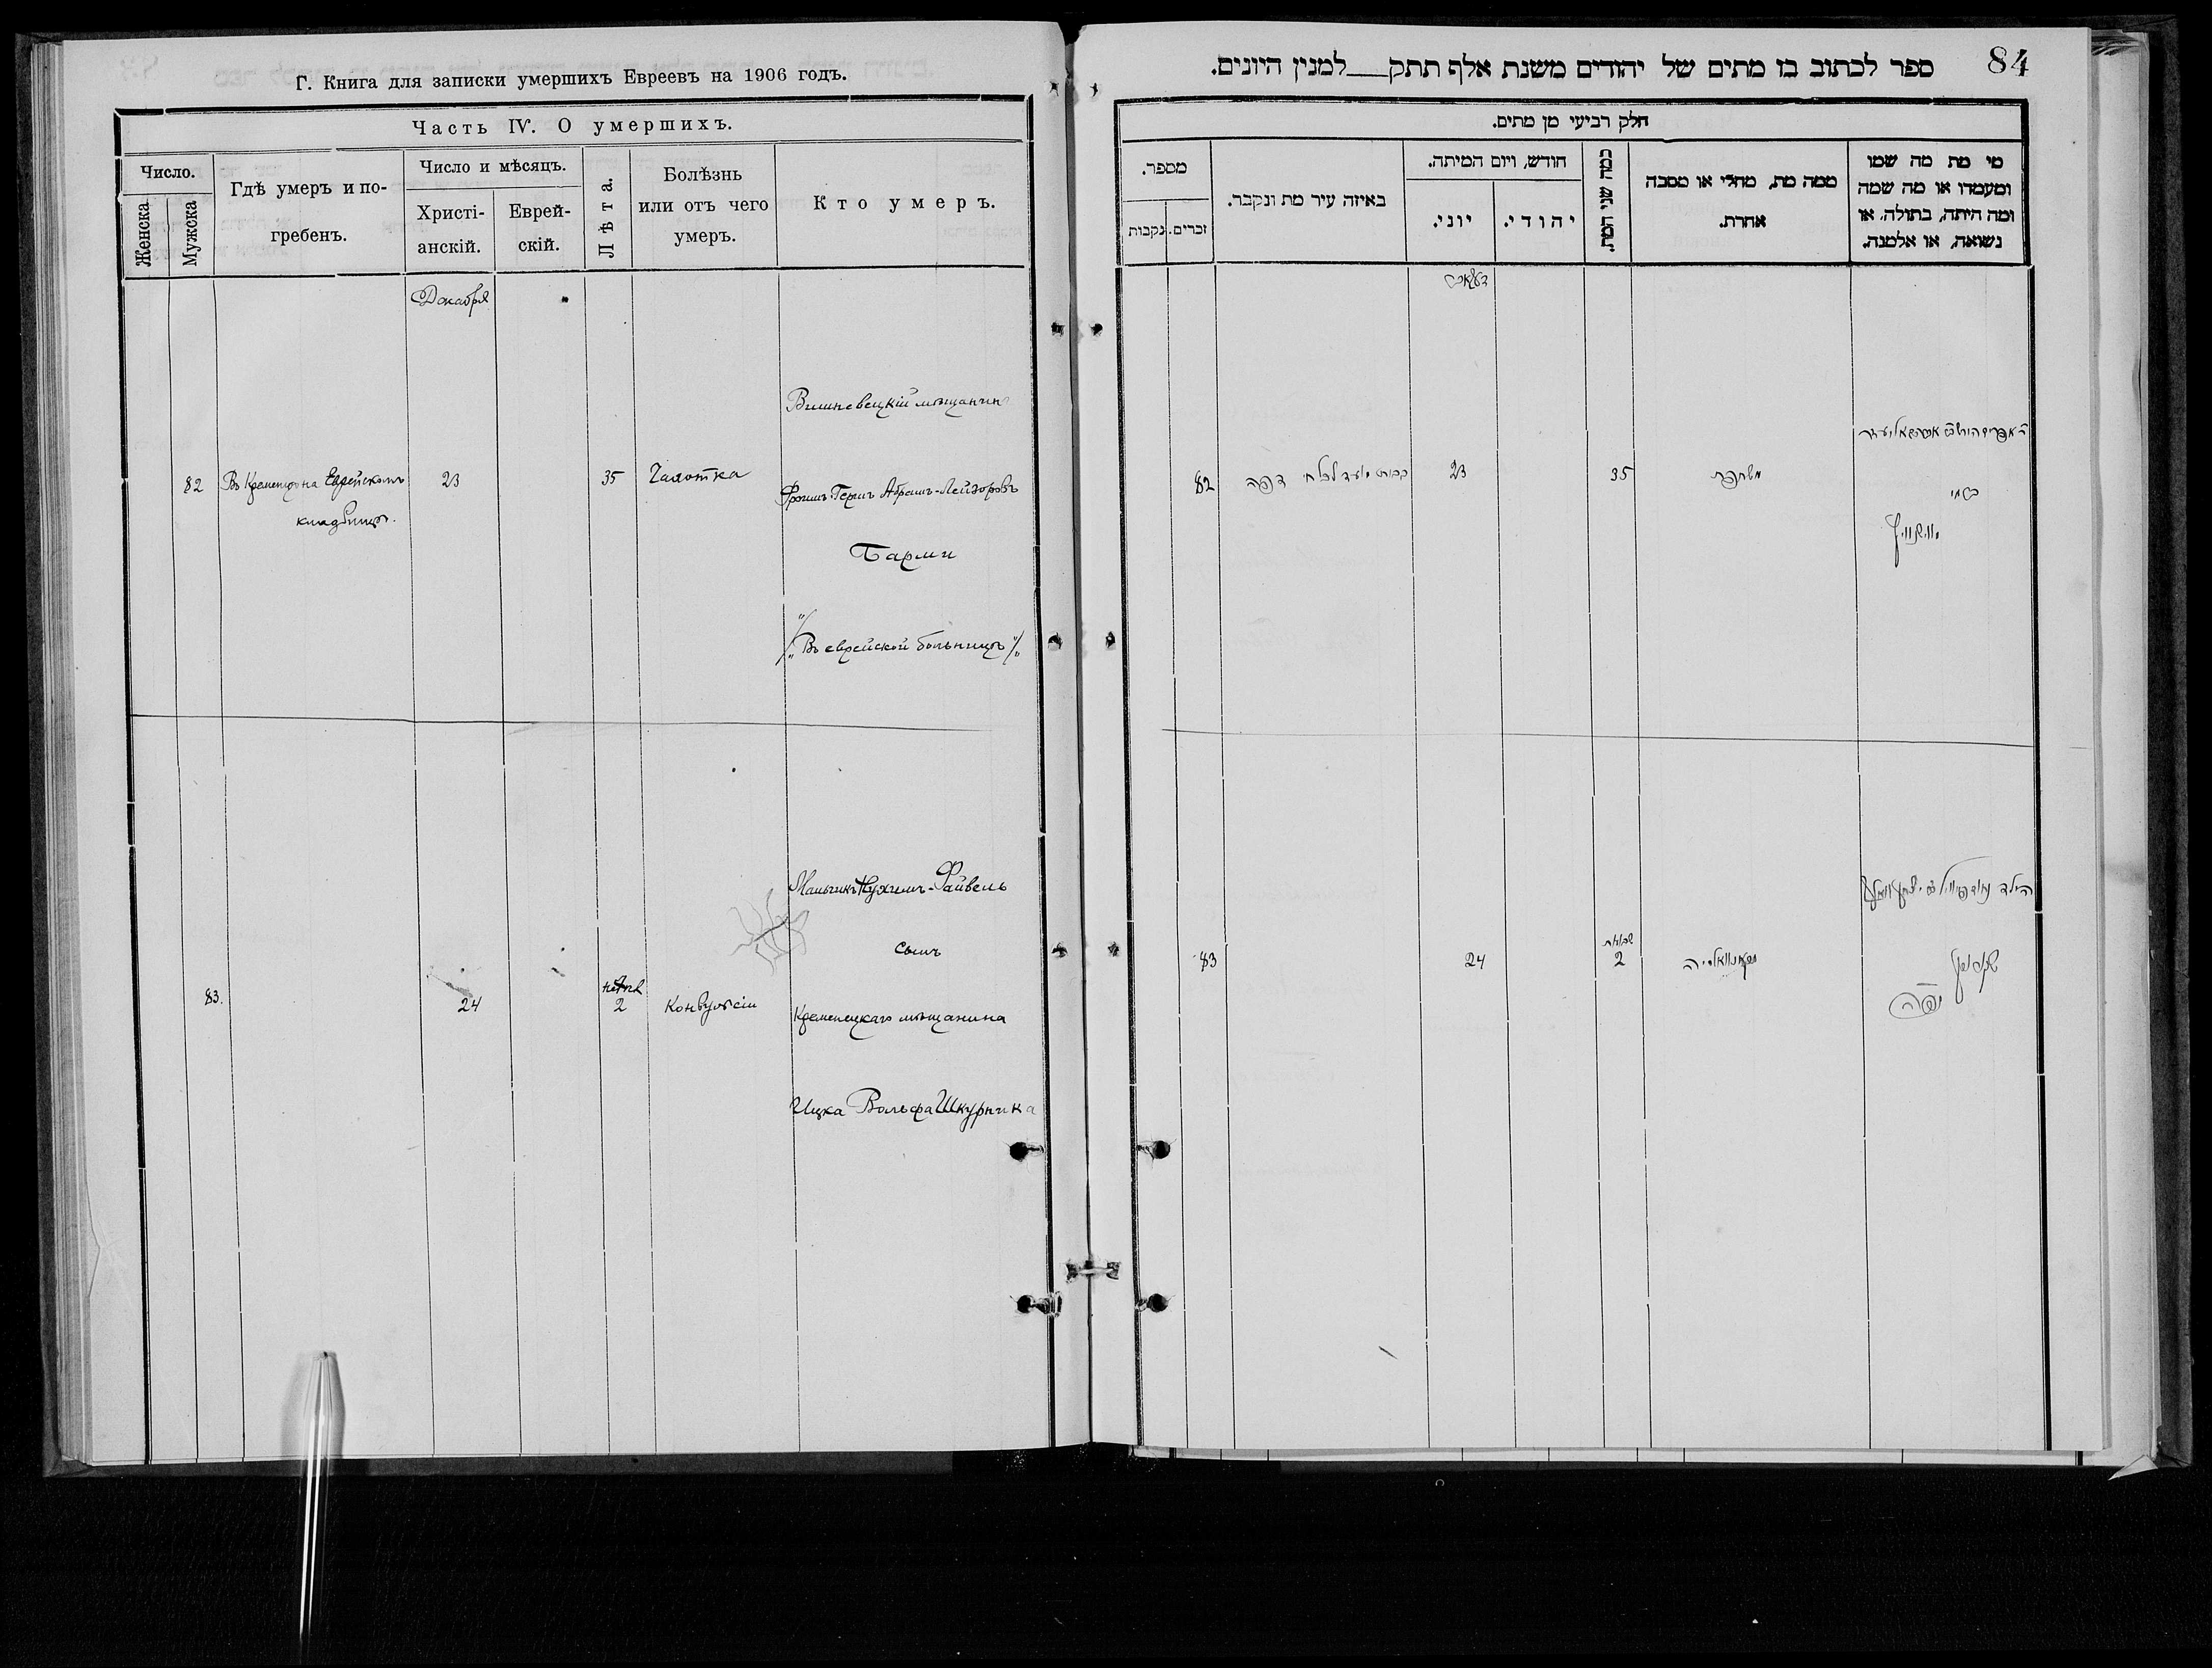 Г. Книга для записки умершихъ Евреевъ на 1906 годъ.
Часть IV. О умершихъ.
Число.
Женска
Мужска
Гдѣ умеръ и по-
гребенъ.
Число и мѣсяцъ.
Христі-
анскій.
Еврей-
скій.
Лѣта.
Болѣзнь
или отъ чего
умеръ.
Кто умеръ.
Декабря
Вишневецкій мѣщанинъ
82 Въ Кременцѣ на Еврейскомъ 23 35 Чахотка
кладбищѣ.
Фроимъ-Гершъ Абрамъ-Лейзоровъ
Барми
/„Въ еврейской больницѣ"/„
Мальчикъ Нухимъ-Файвель
сынъ
83. 24
2 Конвульсіи
Кременецкаго мѣщанина
Ицка Вольфа Шкурника
84
ספר לכתוב בו מתים של יהודים משנת אלף תתק___למנין היונים.
חלק רביעי מן מתים.
מספר.
זכרים.
נקבות
באיזה עיר מת ונקבר.
חודש, ויום המיתה.
יוני.
יהודי.
כמה שני המת.
ממה מת, מחלי או מסבה
אחרת.
מי מת מה שמו
ומעמדו או מה שמה
ומה היתה, בתולה, או
נשואה, או אלמנה.
82
23
35
83
24
2
הילד